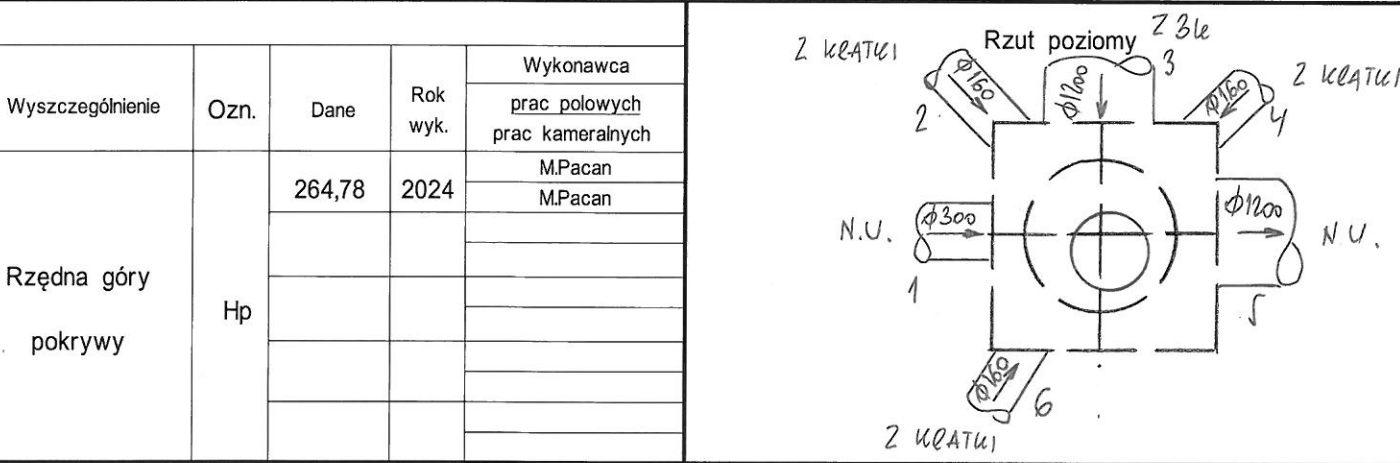 Wyszczególnienie
Ozn.
Dane
Rok
wyk.
Wykonawca
prac polowych
prac kameralnych
Rzędna góry
pokrywy
Hp
264,78
2024
M.Pacan
M.Pacan
Rzut poziomy
Z
3
Z KRATKI
ϕ160
2
ϕ1200
Z KRATKI
ϕ160
4
N.U.
ϕ300
1
ϕ1200
N.U.
5
ϕ160
6
Z KRATKI